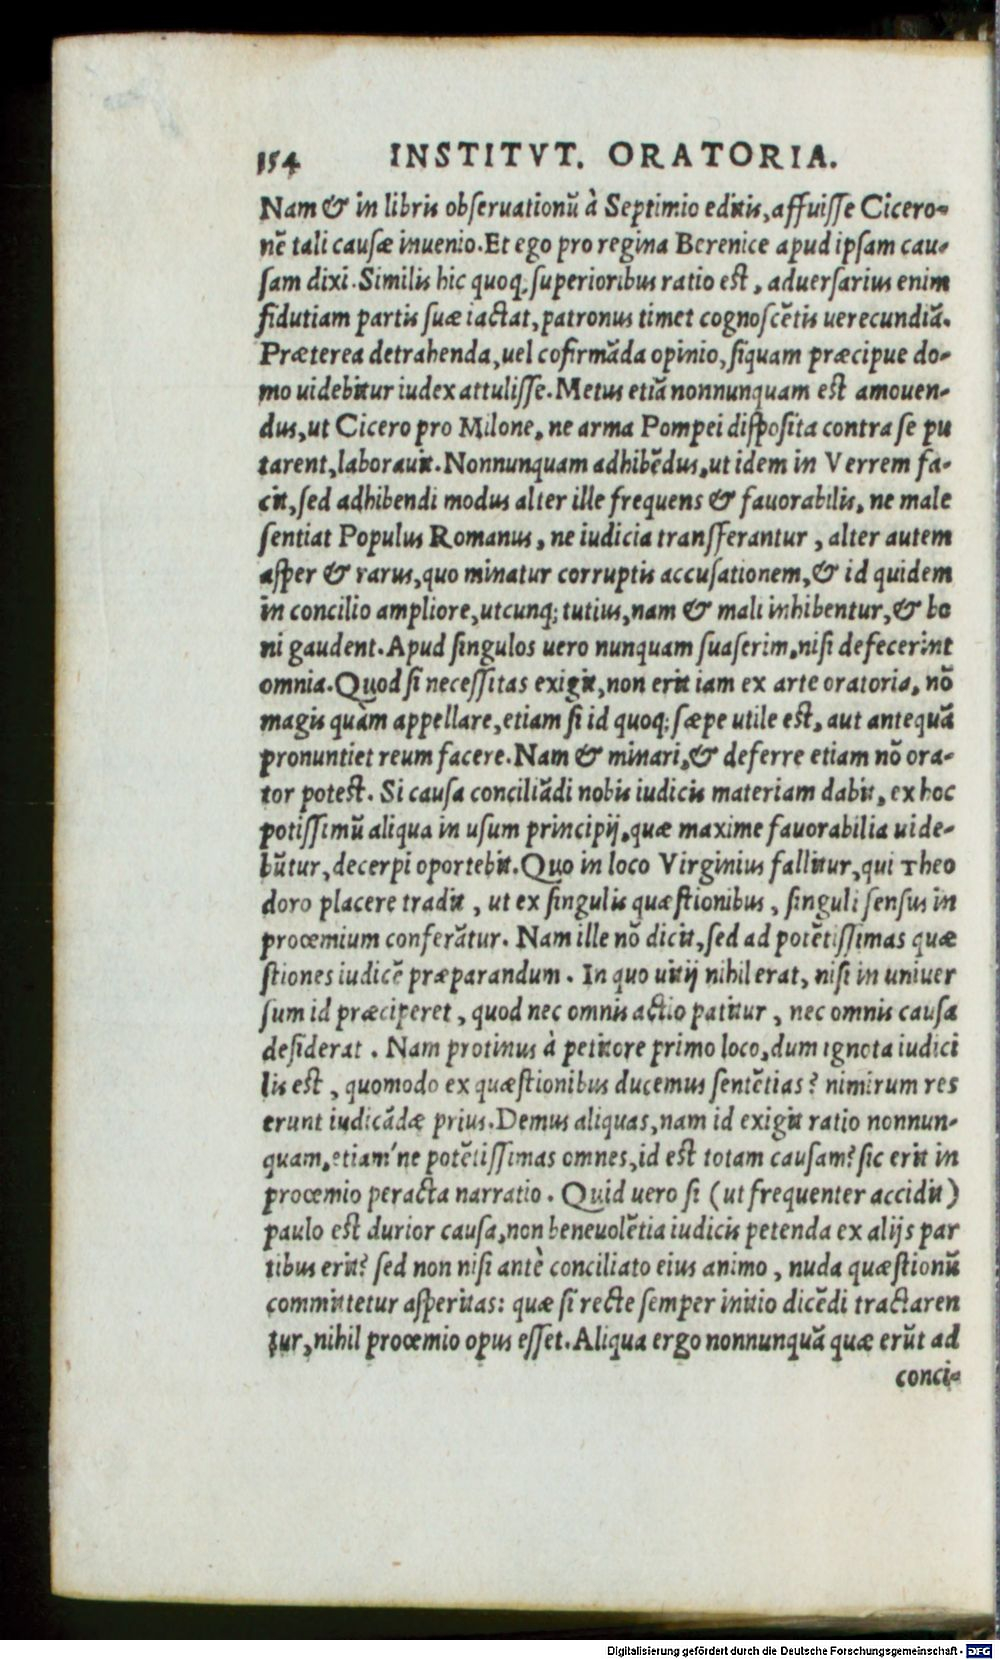 154 INSTITVT. ORATORIA.
Nam & in libris obseruationũ à Septimio editis, affuisse Cicero-
nẽ tali causæ inuenio. Et ego pro regina Berenice apud ipsam cau-
sam dixi. Similis hic quoq; superioribus ratio est, aduersarius enim
fidutiam partis suæ iactat, patronus timet cognoscẽtis uerecundiã.
Præterea detrahenda, uel cõfirmãda opinio, siquam præcipue do-
mo uidebitur iudex attulisse. Metus etiã nonnunquam est amouen-
dus, ut Cicero pro Milone, ne arma Pompei disposita contra se pu
tarent, laborauit. Nonnunquam adhibẽdus, ut idem in Verrem fa-
cit, sed adhibendi modus alter ille frequens & fauorabilis, ne male
sentiat Populus Romanus, ne iudicia transferantur, alter autem
asper & rarus, quo minatur corruptis accusationem, & id quidem
in concilio ampliore, utcunq; tutius, nam & mali inhibentur, & bo
ni gaudent. Apud singulos uero nunquam suaserim, nisi defecerint
omnia. Quod si necessitas exigit, non erit iam ex arte oratoria, nõ
magis quàm appellare, etiam si id quoq; sæpe utile est, aut antequã
pronuntiet reum facere. Nam & minari, & deferre etiam nõ ora-
tor potest. Si causa conciliãdi nobis iudicis materiam dabit, ex hoc
potissimũ aliqua in usum principij, quæ maxime fauorabilia uide-
bũtur, decerpi oportebit. Quo in loco Virginius fallitur, qui Theo
doro placere tradit, ut ex singulis quæstionibus, singuli sensus in
proœmium conferãtur. Nam ille nõ dicit, sed ad potẽtissimas quæ
stiones iudicẽ præparandum. In quo uitij nihil erat, nisi in uniuer
sum id præciperet, quod nec omnis actio patitur, nec omnis causa
desiderat. Nam protinus à petitore primo loco, dum ignota iudici
lis est, quomodo ex quæstionibus ducemus sentẽtias? nimirum res
erunt iudicãdæ prius. Demus aliquas, nam id exigit ratio nonnun-
quam, etiam'ne potẽtissimas omnes, id est totam causam? sic erit in
proœmio peracta narratio. Quid uero si (ut frequenter accidit)
paulo est durior causa, non beneuolẽtia iudicis petenda ex alijs par
tibus erit? sed non nisi antè conciliato eius animo, nuda quæstionũ
committetur asperitas: quæ si recte semper initio dicẽdi tractaren
tur, nihil proœmio opus esset. Aliqua ergo nonnunquã quæ erũt ad
conci-
Digitalisierung gefördert durch die Deutsche Forschungsgemeinschaft - DFG